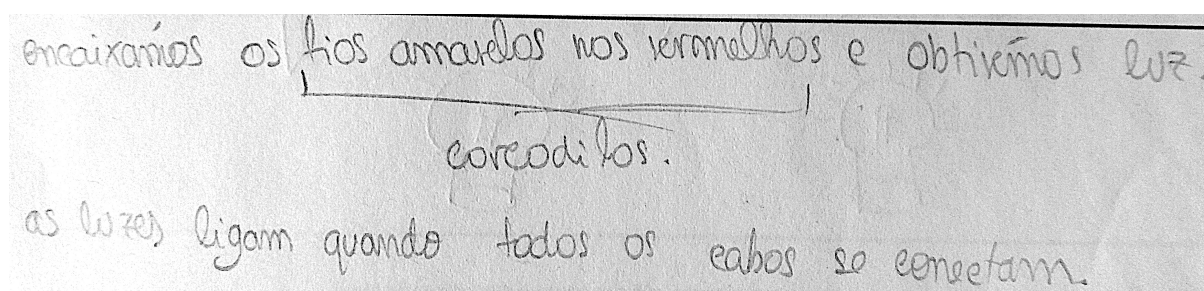 encaixamos os fios amarelos nos vermelhos e obtivemos luz
corcodilos.
as luzes ligam quando todos os cabos se conectam.